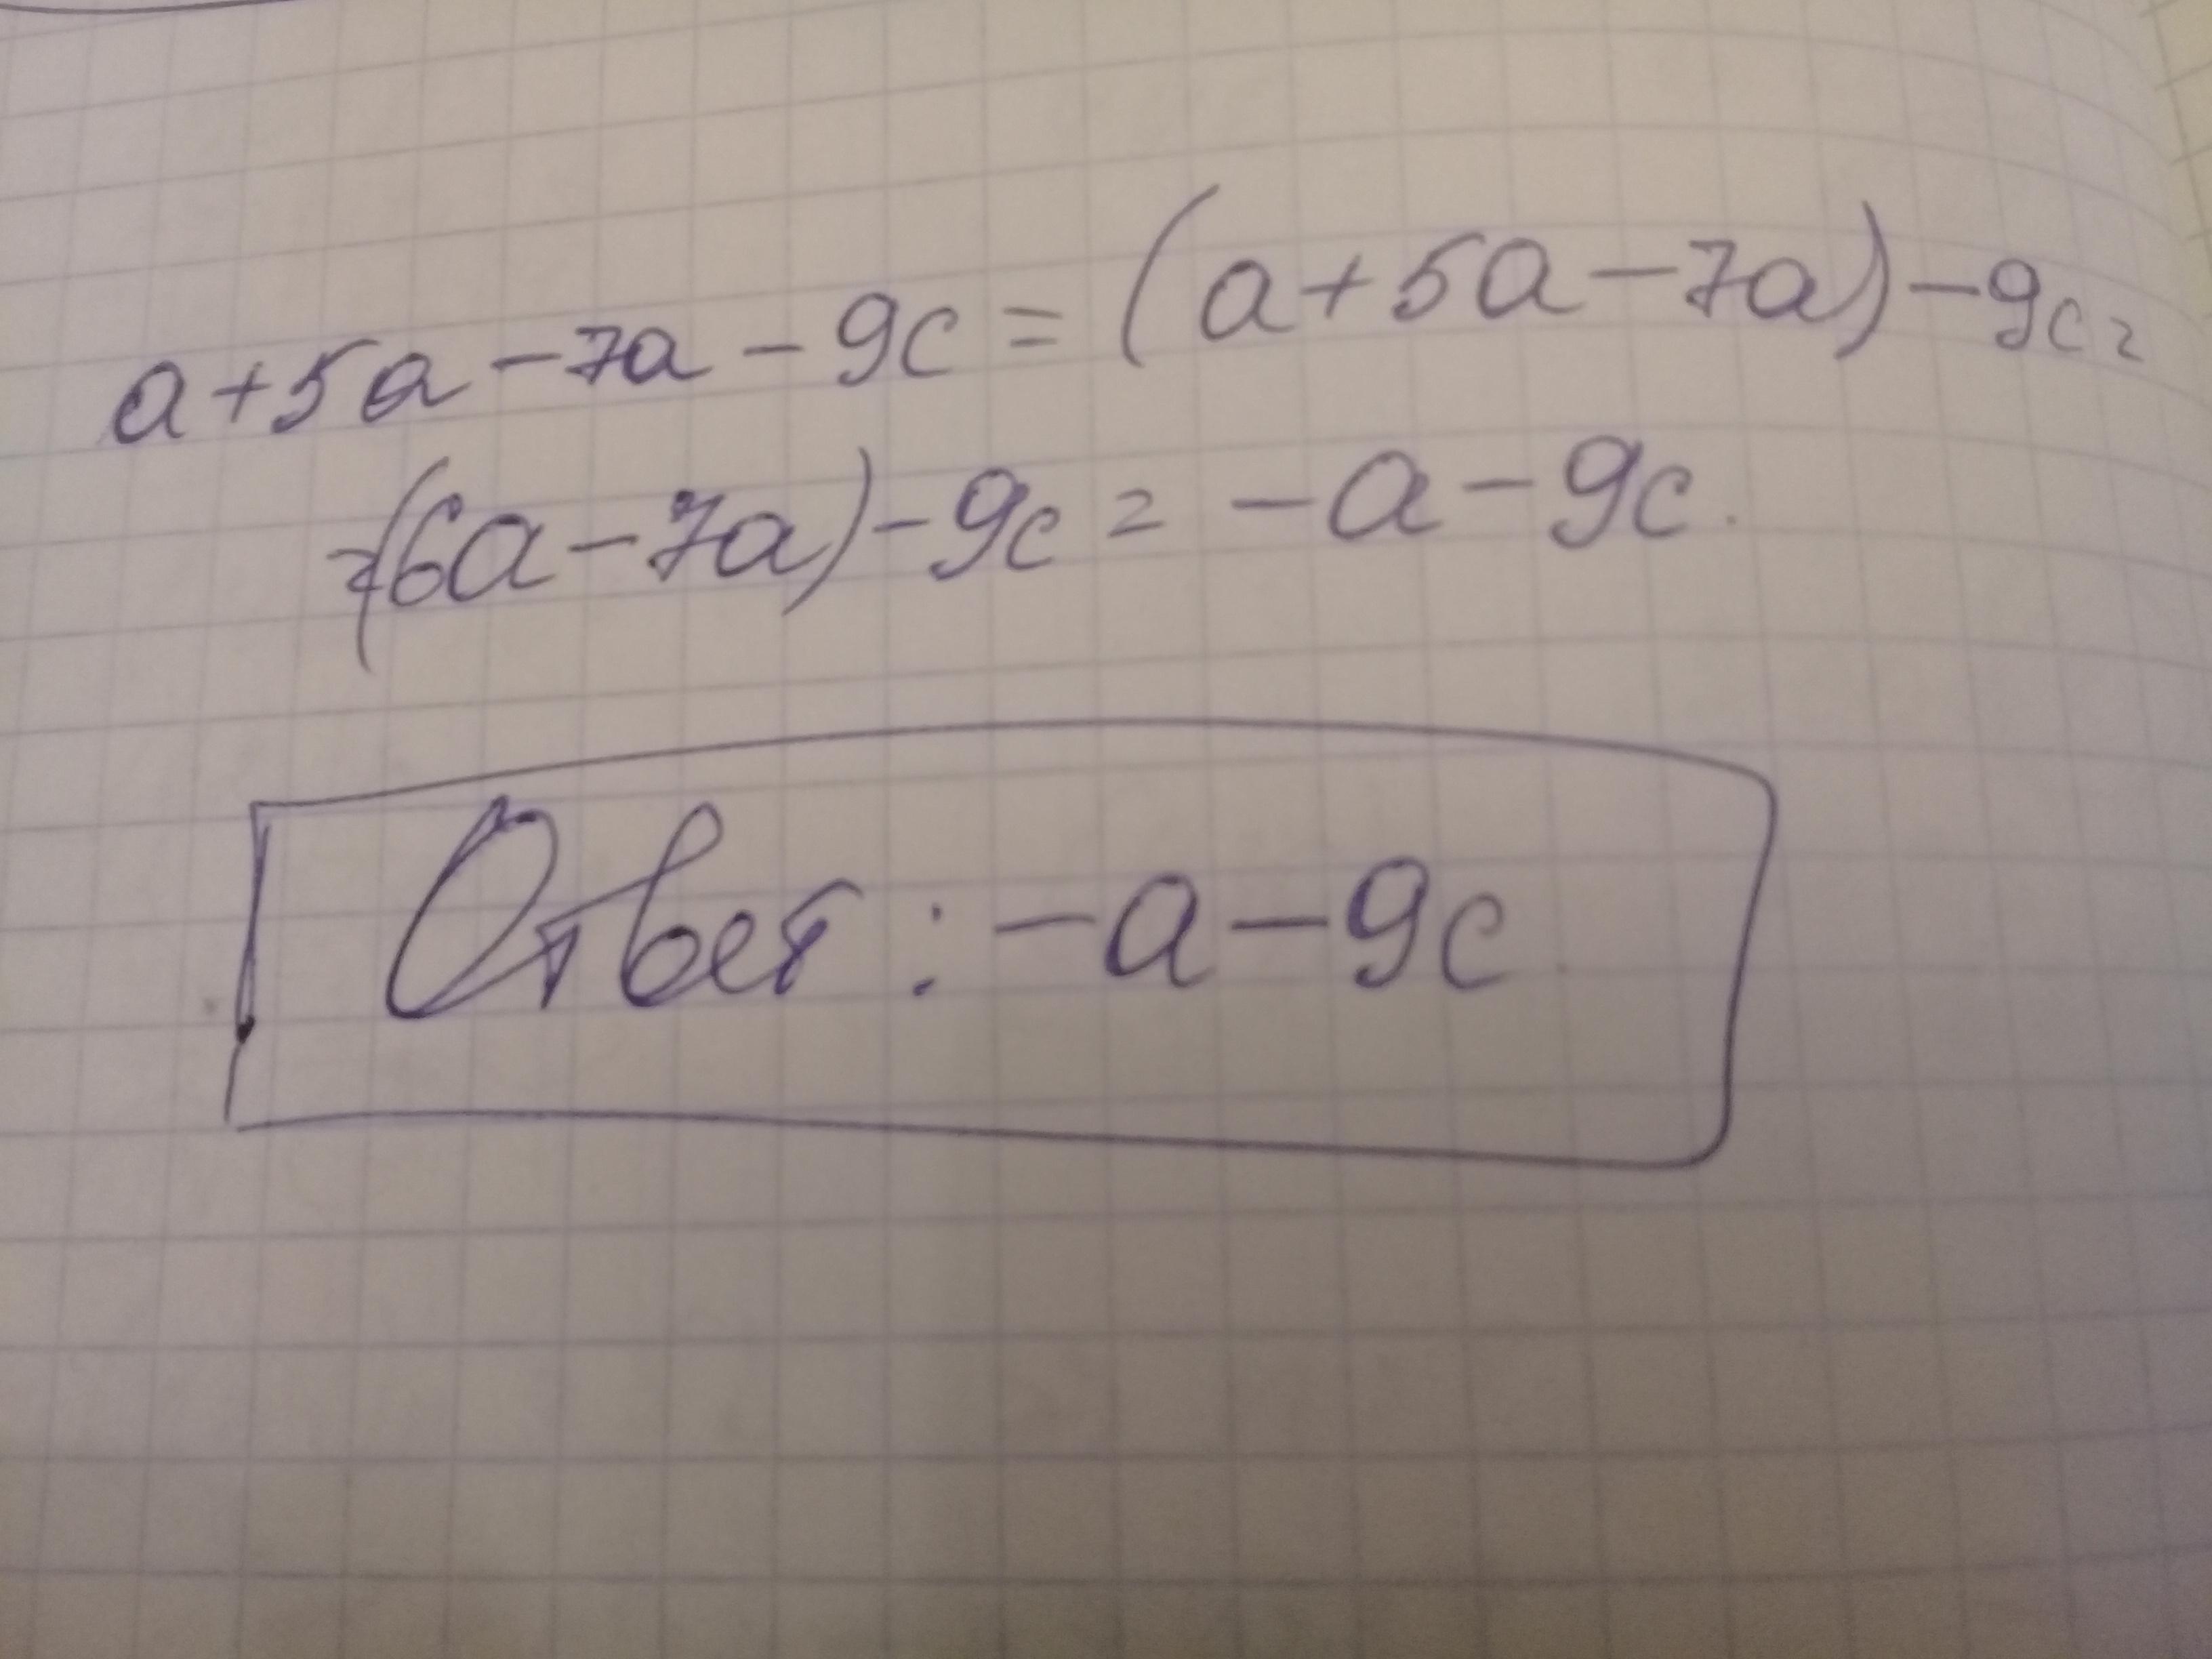 a+5a-7a-9c=(a+5a-7a)-9c=
=(6a-7a)-9c=-a-9c.
Ответ:-a-9c